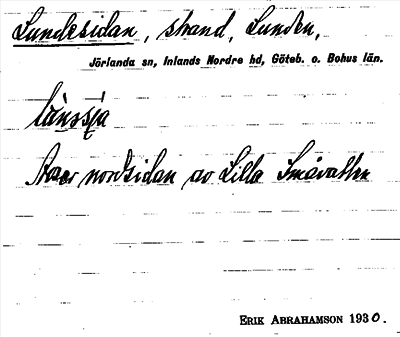 Lundesidan, strand, Lunden,
Jörlanda sn, Inlands Nordre hd, Göteb. o. Bohus län.
norrsidan av Lilla Småvatten
ERIK ABRAHAMSON 1930.